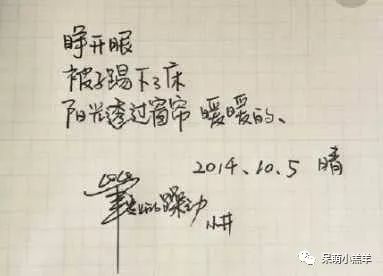 睁开眼
被子踢下了床
阳光透过窗帘 暖暖的、
2014.10.5 晴
的躁动
小井
呆萌小羔羊